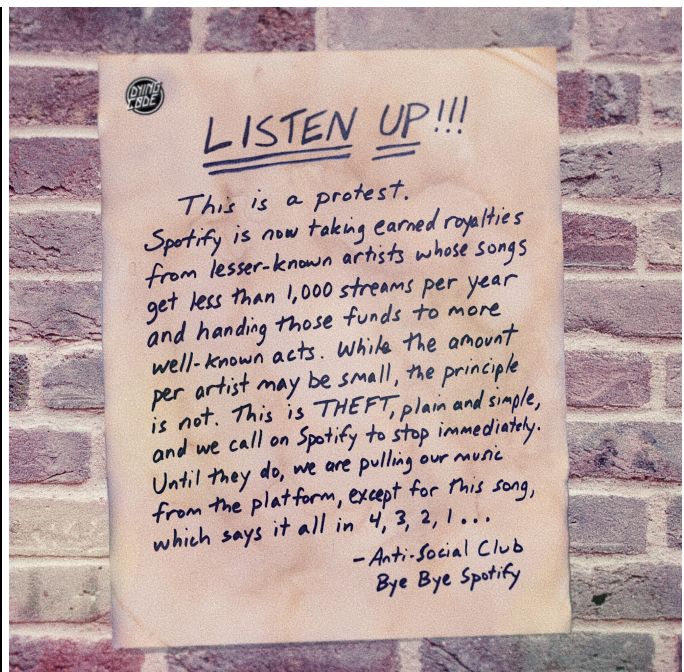 DYING CODE
LISTEN UP!!!
This is a protest.
Spotify is now taking earned royalties
from lesser-known artists whose songs
get less than 1,000 streams per year
and handing those funds to more
well-known acts. While the amount
per artist may be small, the principle
is not. This is THEFT, plain and simple,
and we call on Spotify to stop immediately.
Until they do, we are pulling our music
from the platform, except for this song,
which says it all in 4, 3, 2, 1...
-Anti-Social Club
Bye Bye Spotify